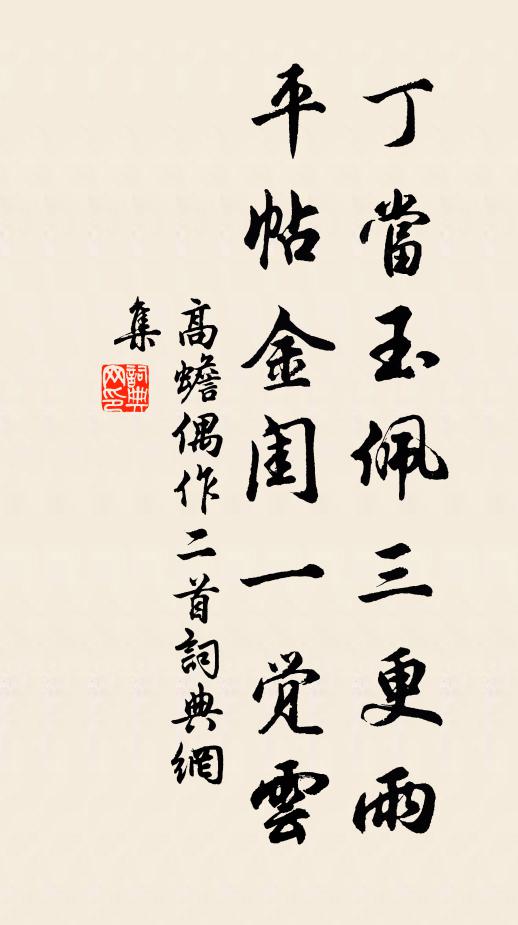 丁當玉佩三更雨
平帖金閨一觉雲
高蟾偶作二首詞典網
集
詞典
网印